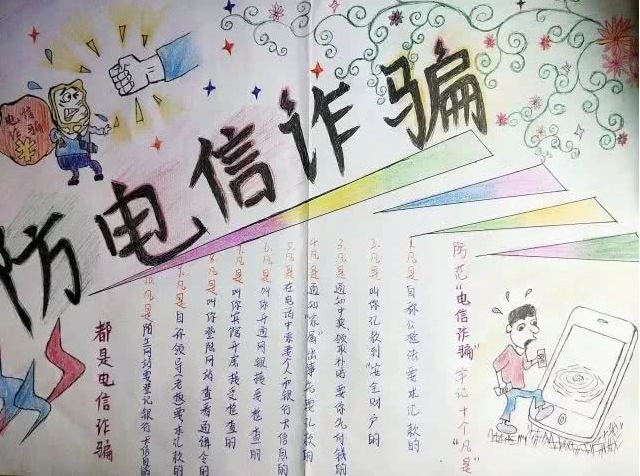 防电信诈骗
电信
诈骗
防范“电信诈骗”牢记十个“凡是”
1.凡是自称公检法要求汇款的
2.凡是叫你汇款到“安全账户”的
3.凡是通知中奖领取补贴要你先付钱的
4.凡是通知“家属”出事先要汇款的
5.凡是在电话中索要个人和银行卡信息的
6.凡是叫你开通网银接受检查的
7.凡是叫你宾馆开房接受检查的
8.凡是叫你登陆网站查看通缉令的
9.凡是自称领导(老板)要求汇款的
10.凡是陌生网站要登记银行卡信息的
都是电信诈骗